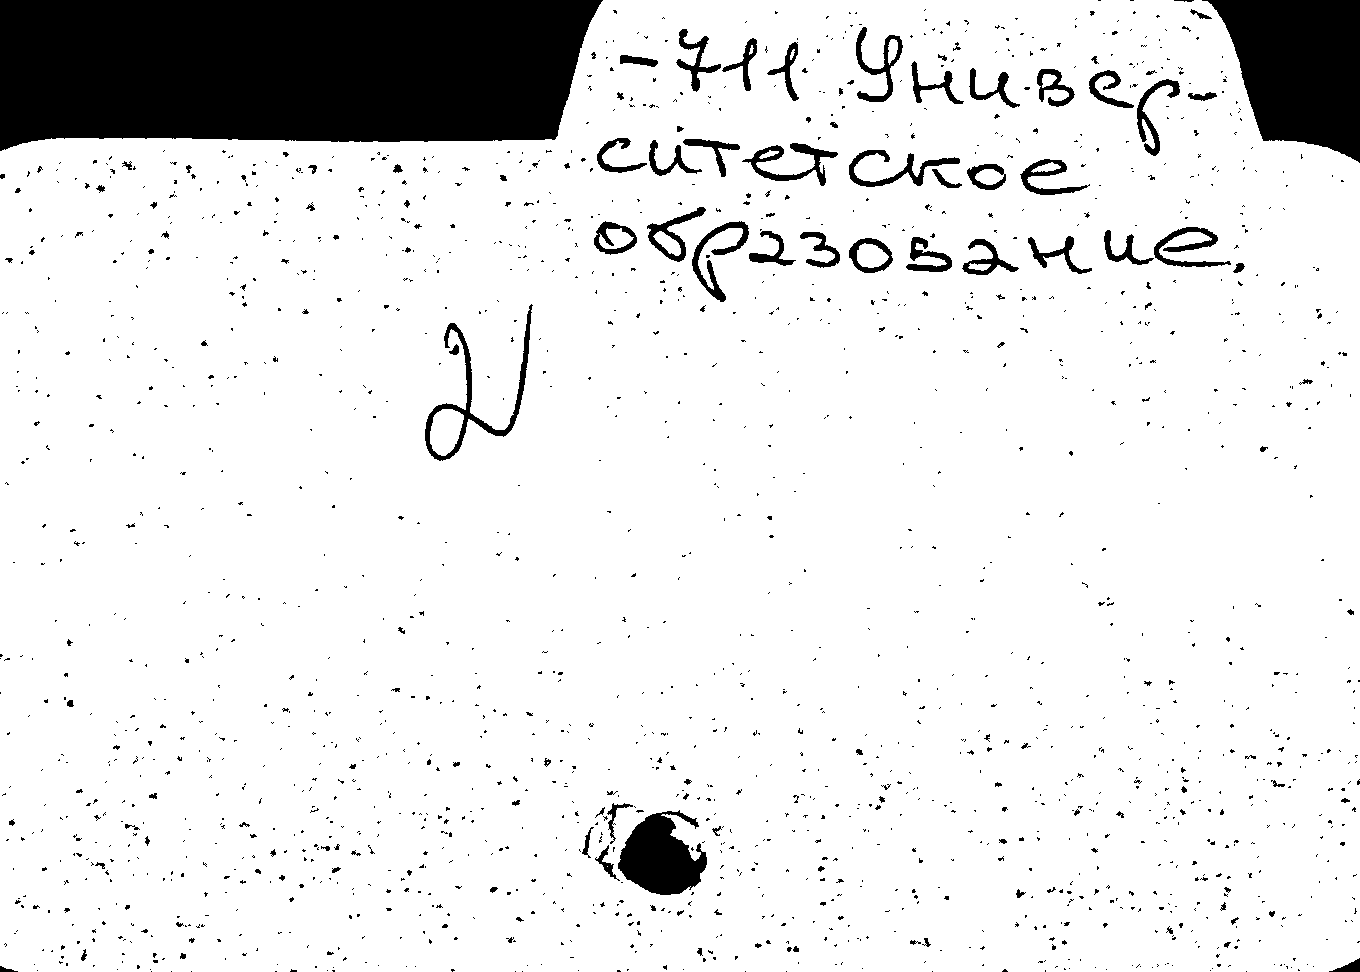 -711 Универ-
ситетское
образование.